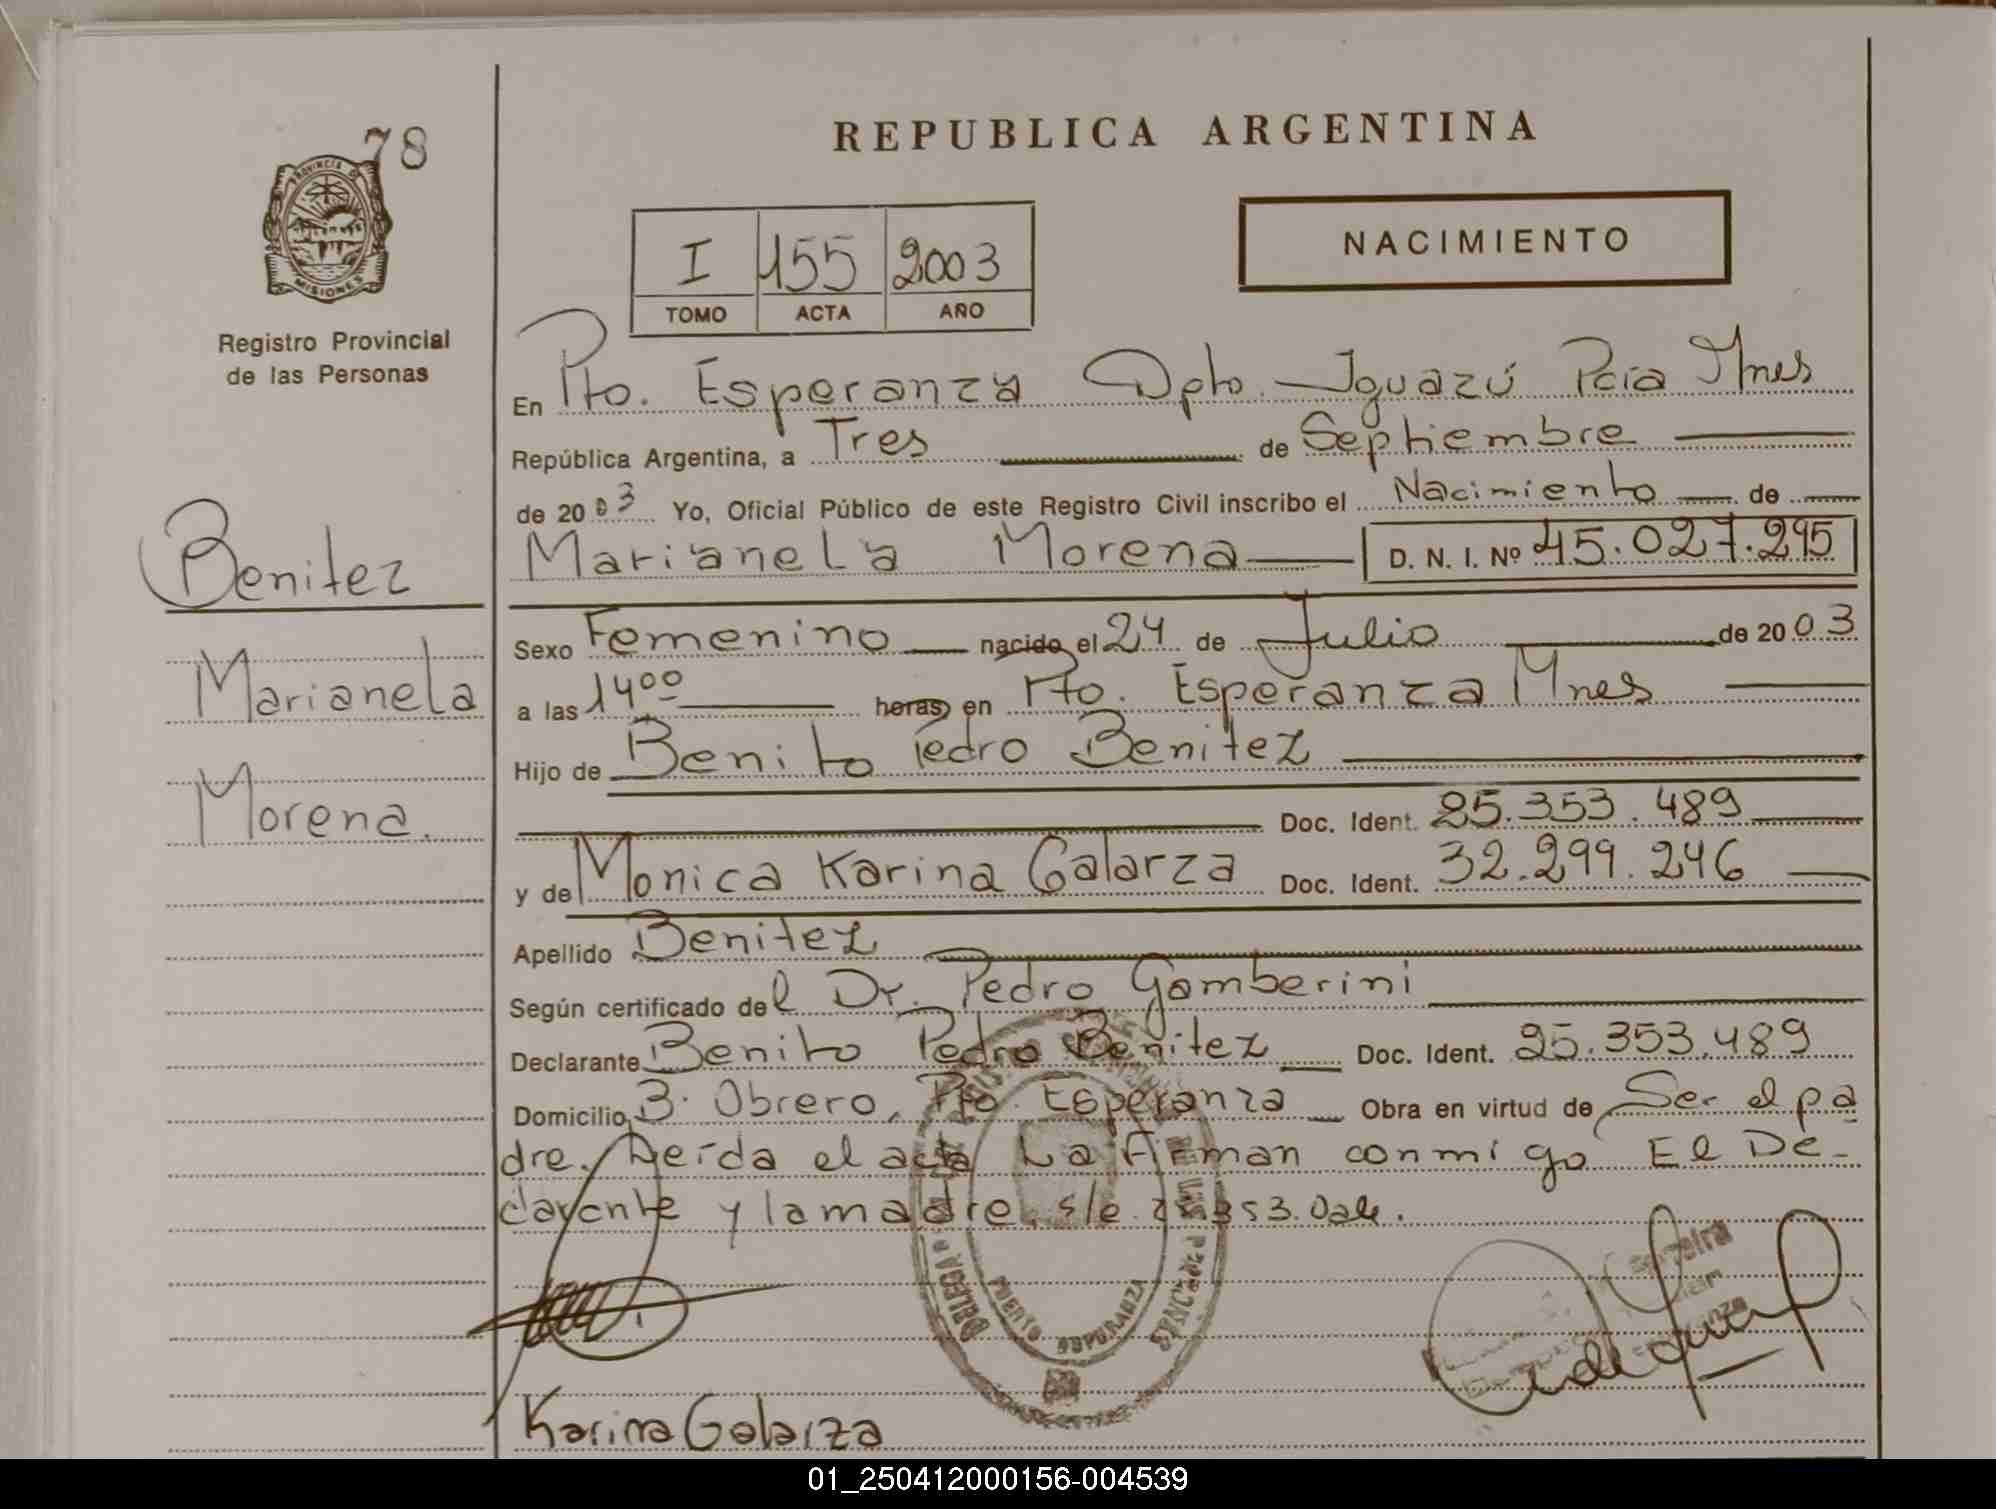 78
PROVINCIA DE
MISIONES
Registro Provincial
de las Personas
REPUBLICA ARGENTINA
I 155 2003
TOMO ACTA AÑO
NACIMIENTO
En Pto. Esperanza Dpto. Iguazú Pcia Mnes
República Argentina, a Tres de Septiembre
de 2003 Yo, Oficial Público de este Registro Civil inscribo el Nacimiento de
Marianela Morena D. N. I. Nº 45.027.295
Benitez
Marianela
Morena.
Sexo Femenino nacido el 24 de Julio de 2003
a las 14 00 horas en Pto. Esperanza Mnes
Hijo de Benito Pedro Benitez
Doc. Ident. 25.353.489
y de Monica Karina Galarza Doc. Ident. 32.299.246
Apellido Benitez
Según certificado del Dr. Pedro Gamberini
Declarante Benito Pedro Benitez Doc. Ident. 25.353.489
Domicilio B. Obrero, Pto. Esperanza Obra en virtud de Ser el pa
dre. Leída el acta La Firman conmigo El De-
clarante y la madre. s/e. 353. Vale.
PUERTO ESPERANZA
Karina Galarza
01_250412000156-004539